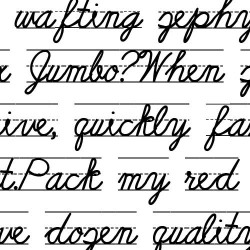 wafting zephy
x Jumbo? When z
ive, quickly fa
t. Pack my red
ve dozen quality